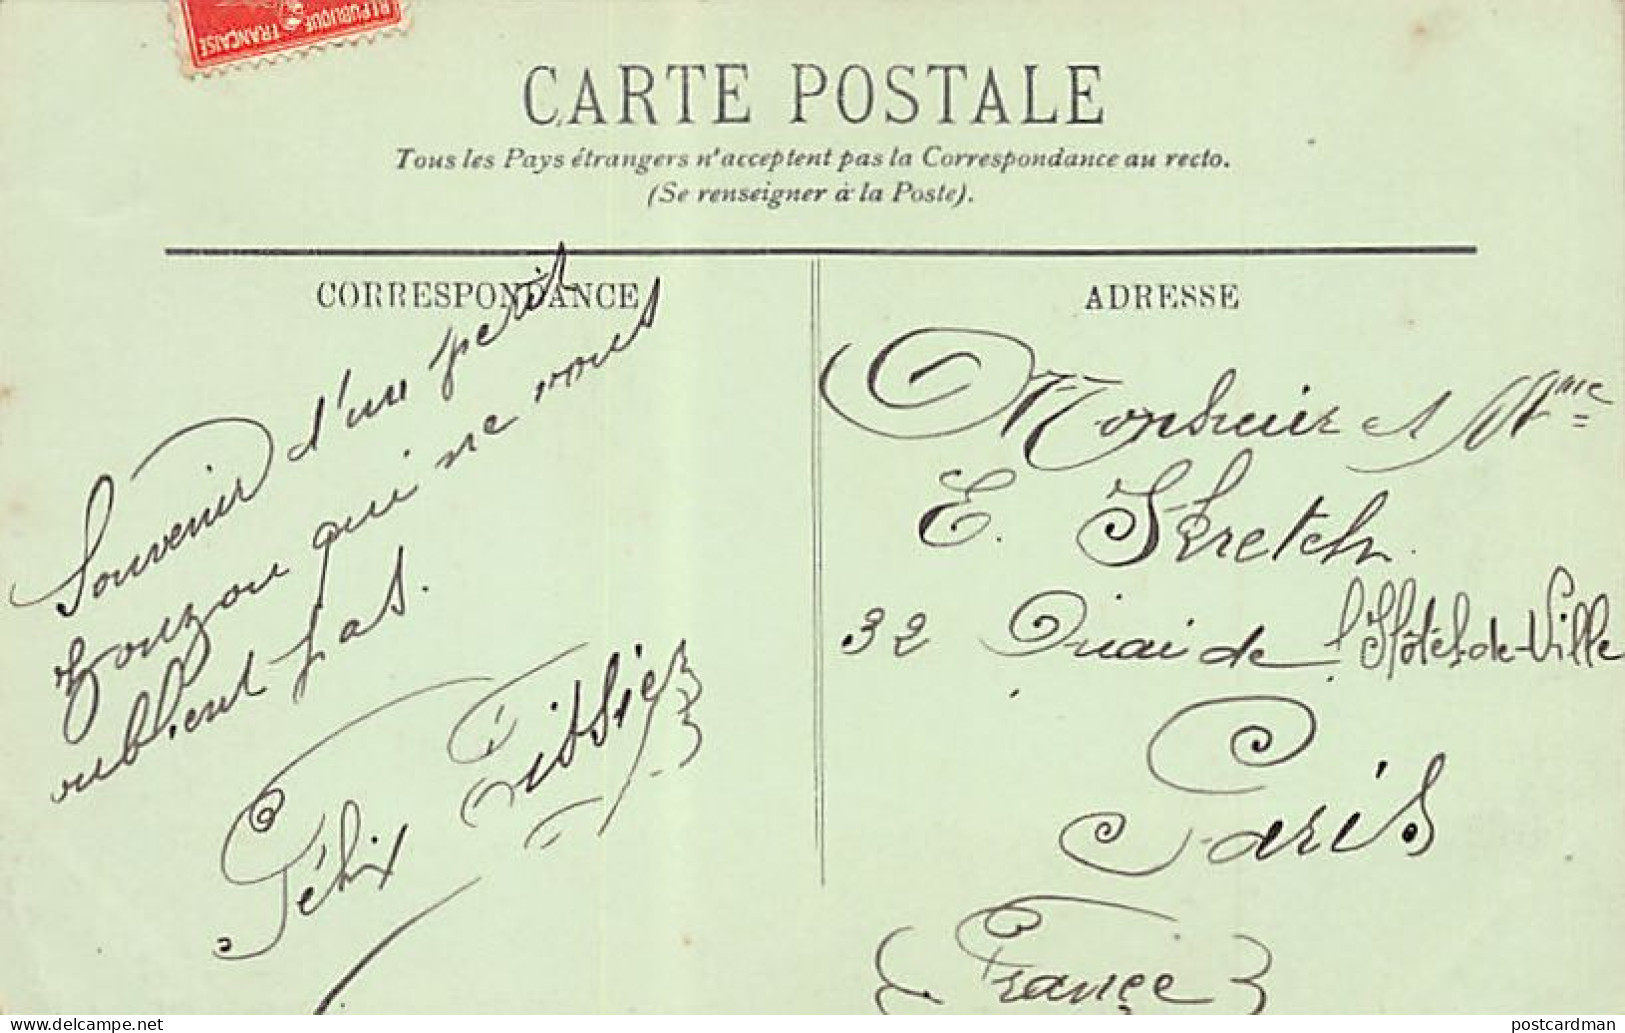 RÉPUBLIQUE FRANÇAISE
CARTE POSTALE
Tous les Pays étrangers n'acceptent pas la Correspondance au recto.
(Se renseigner à la Poste).
CORRESPONDANCE
Souvenir d'un petit
zouzou qui ne vous
oublient pas.
Félix Tissier
ADRESSE
Monsieur et Mme
E. Skretch
32 Quai de l'Hôtel-de-Ville
Paris
France
www.delcampe.net
postcardman